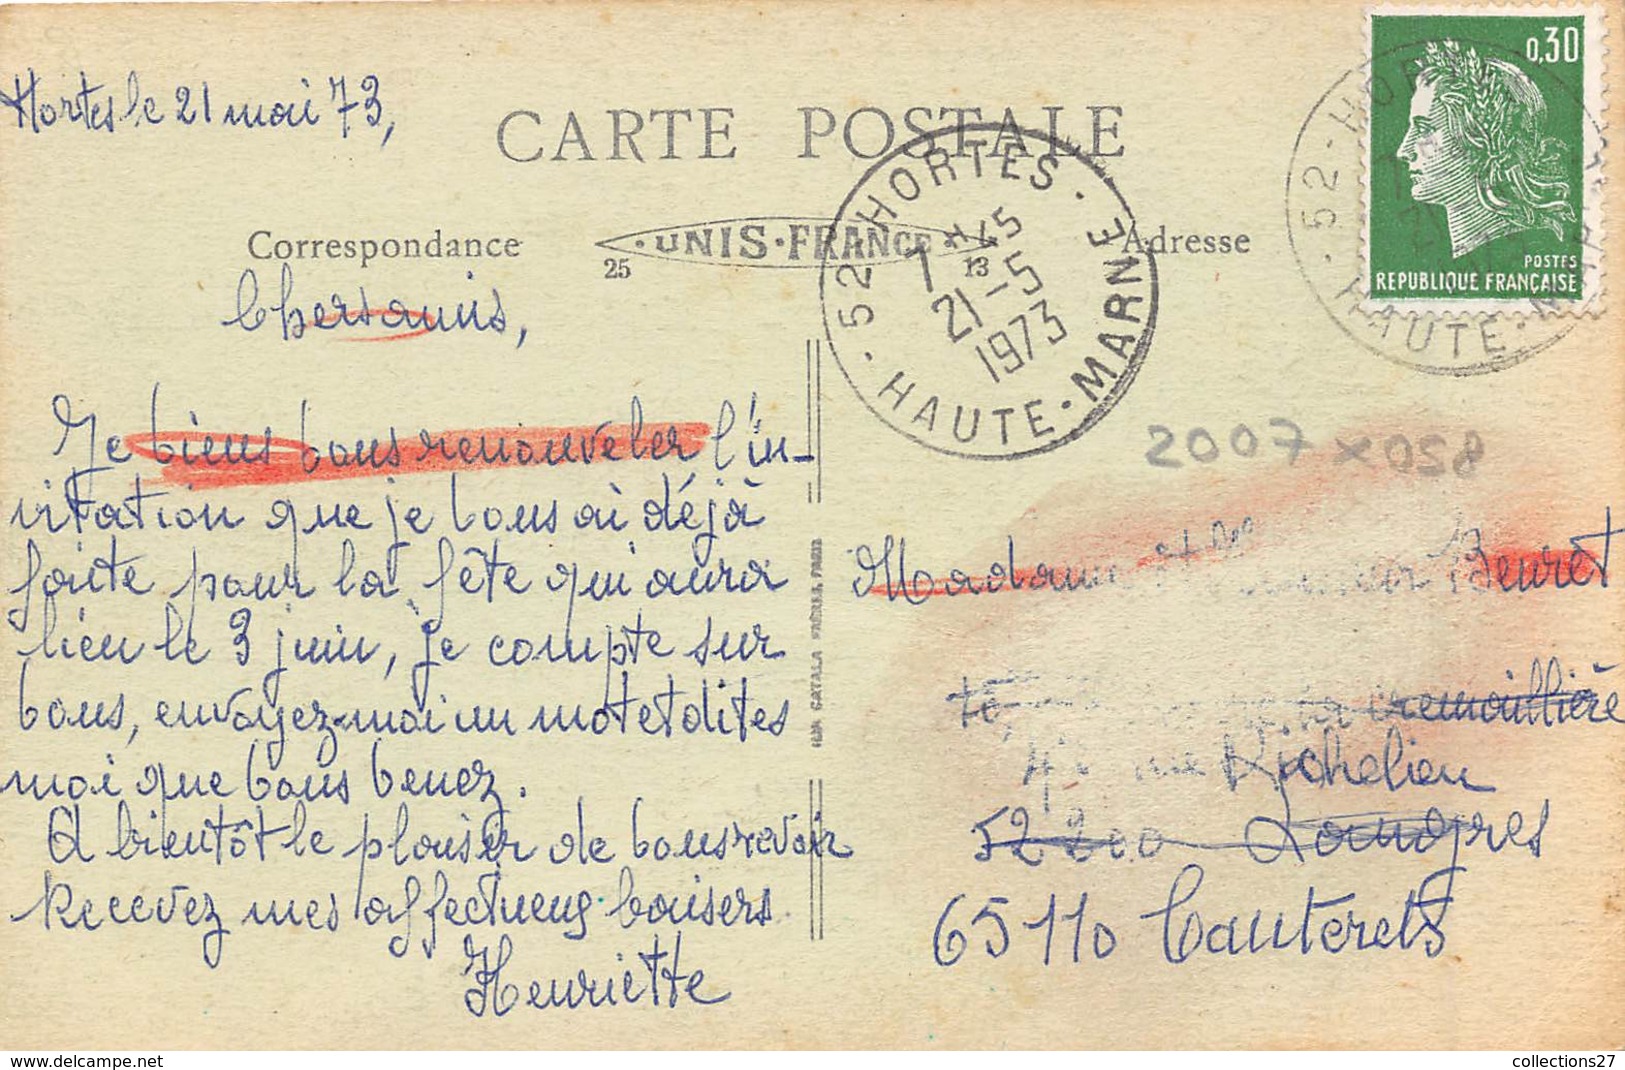 Hortes le 21 mai 73,
CARTE POSTALE
Correspondance
UNIS-FRANCE
25
13
Adresse
0,30
POSTES
REPUBLIQUE FRANÇAISE
52-HORTES
HAUTE-MARNE
52-HORTES
7 H 45
21-5
1973
HAUTE-MARNE
Chers amis,
Je viens vous renouveler l'in-
vitation que je vous ai déjà
faite pour la fête qui aura
lieu le 3 juin, je compte sur
vous, envoyez-moi un mot et dites
moi que vous venez.
A bientôt le plaisir de vous revoir
Recevez mes affectueux baisers
Henriette
CATALA FRÈRES, PARIS
2007 x 058
Madame et Beuret
la cremaillière
rue Richelieu
52200 Langres
65110 Cauterets
www.delcampe.net
collections27